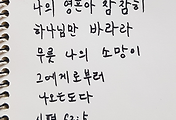 나의 영혼아 잠잠히
하나님만 바라라
무릇 나의 소망이
그에게로부터
나오는도다
시편 62:5